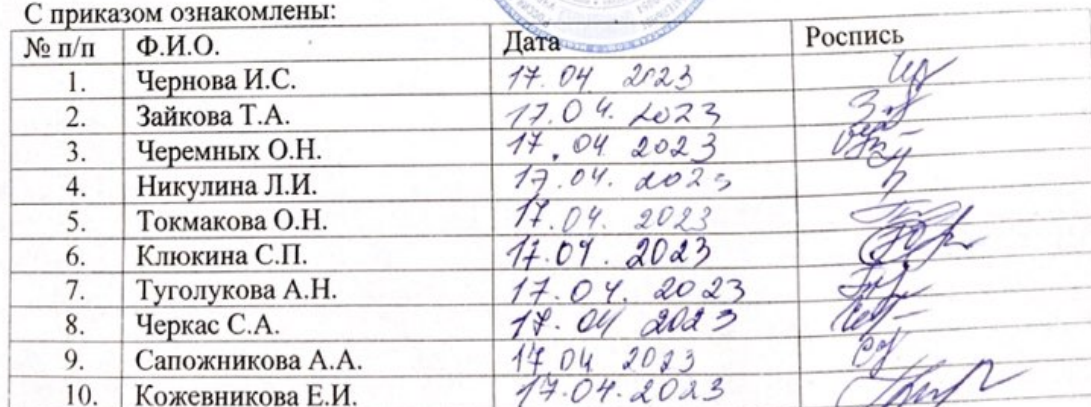 С приказом ознакомлены:
№ п/п Ф.И.О. Дата Роспись
1. Чернова И.С. 17.04 2023
2. Зайкова Т.А. 17.04.2023
3. Черемных О.Н. 17.04 2023
4. Никулина Л.И. 17.04.2023
5. Токмакова О.Н. 17.04.2023
6. Клюкина С.П. 17.04.2023
7. Туголукова А.Н. 17.04.2023
8. Черкас С.А. 17.04 2023
9. Сапожникова А.А. 17 04 2023
10. Кожевникова Е.И. 17.04.2023